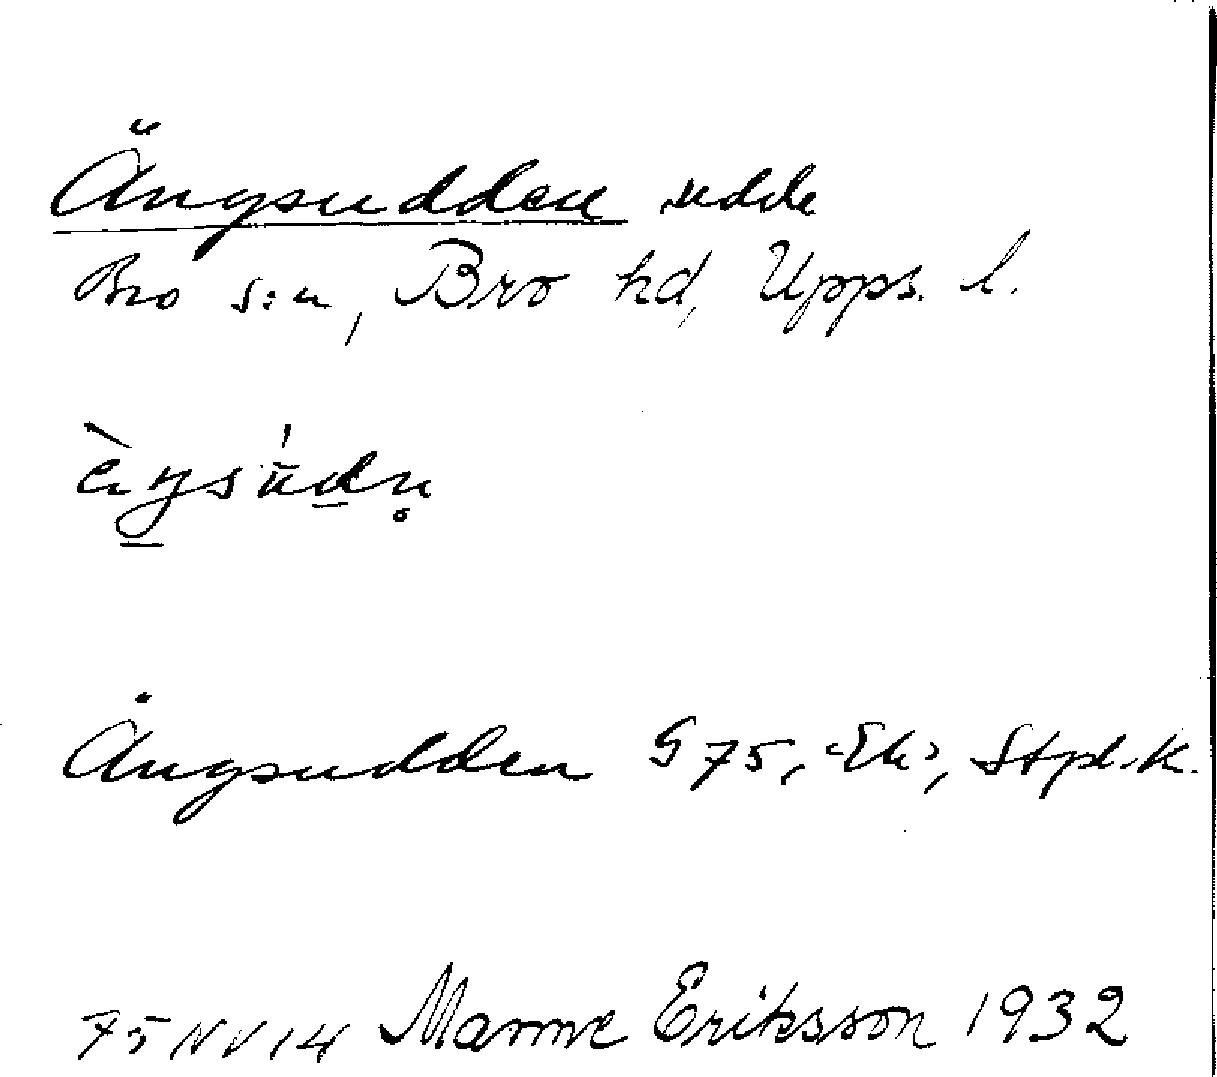 Ängsudden udde
Bro s:n, Bro hd, Upps. l.
Ängsudden G 75, Ek, Stpl.k.
75 NV 14 Manne Eriksson 1932